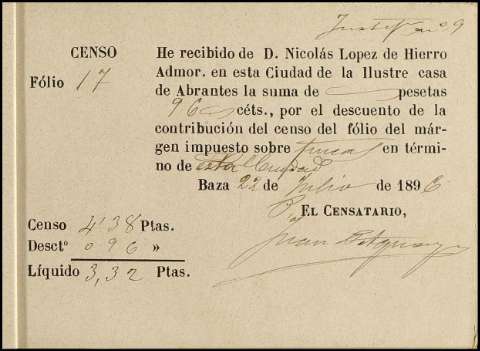 Justif. nº 9
CENSO
Fólio 17
He recibido de D. Nicolás Lopez de Hierro
Admor. en esta Ciudad de la Ilustre casa
de Abrantes la suma de pesetas
96 céts., por el descuento de la
contribución del censo del fólio del már-
gen impuesto sobre fincas en térmi-
no de esta Ciudad
Baza 22 de Julio de 1896
EL CENSATARIO,
Juan
Censo 4'38 Ptas.
Desctº 0 96 »
Líquido 3,32 Ptas.